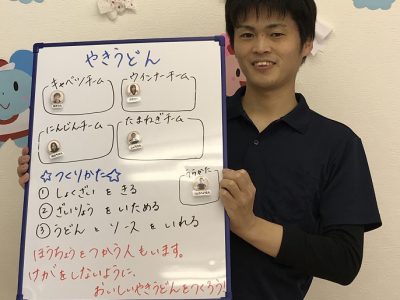 やきうどん
キャベツチーム
ウインナーチーム
にんじんチーム
たまねぎチーム
☆つくりかた☆
うらかた
① しょくざい を きる
② ざいりょう を いためる
③ うどん と ソース を いれる
ほうちょうをつかう人もいます。
けがをしないように、
おいしいやきうどんをつくろう!